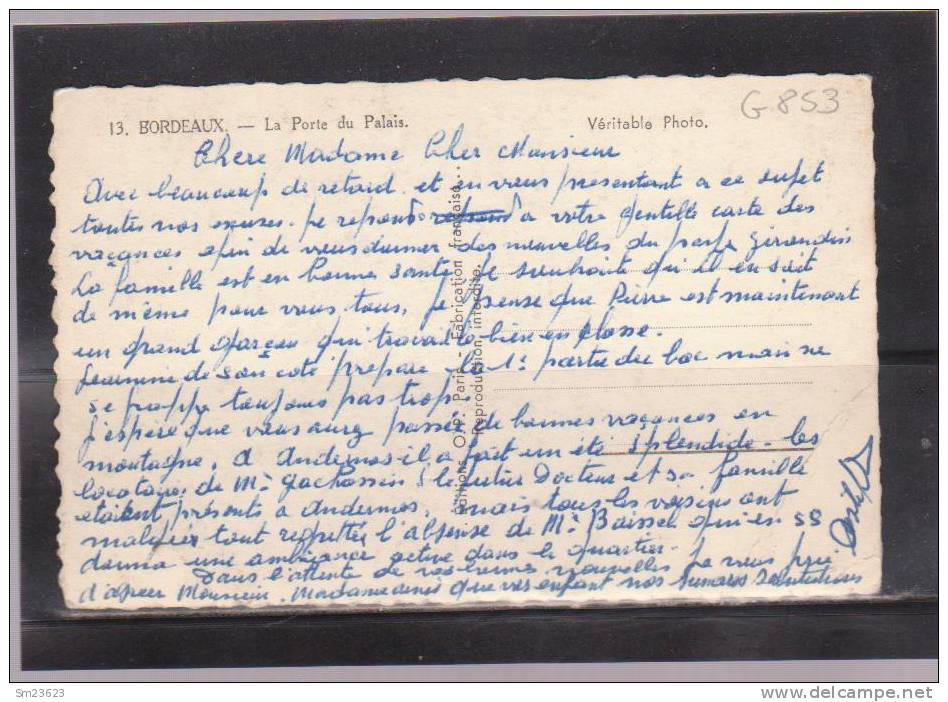 G 853
13. BORDEAUX. — La Porte du Palais.
Véritable Photo.
Chere Madame Cher Monsieur
Avec beaucoup de retard et en vous presentant a ce sujet
toutes nos excuses. je repond a votre gentille carte des
vacances afin de vous donner des nouvelles du pays Girondin
La famille est en bonne santé. Je souhaite qu'il en soit
de même pour vous tous, je pense que Pierre est maintenant
un grand garçon qui travaille bien en classe.
Jeannine de son coté prepare la 1e partie du bac mais ne
se frappe toujours pas trop.
J'espere que vous aurez passée de bonnes vacances en
montagne, a Andernos il a fait un été splendide. les
locataires de Me Gachassin (le futur Docteur et sa famille
etaient présents a Andernos, mais tous les voisins ont
malgrés tout regretté l'absense de Me Baisse qui en 55
donna une ambiance active dans le quartier.
Dans l'attente de vos bonnes nouvelles je vous prie
d'agreer Monsieur, Madame ainsi que vos enfant nos Salutations
Editions O.P. Paris - Fabrication française.
Reproduction interdite.
Sm23623
www.delcampe.net